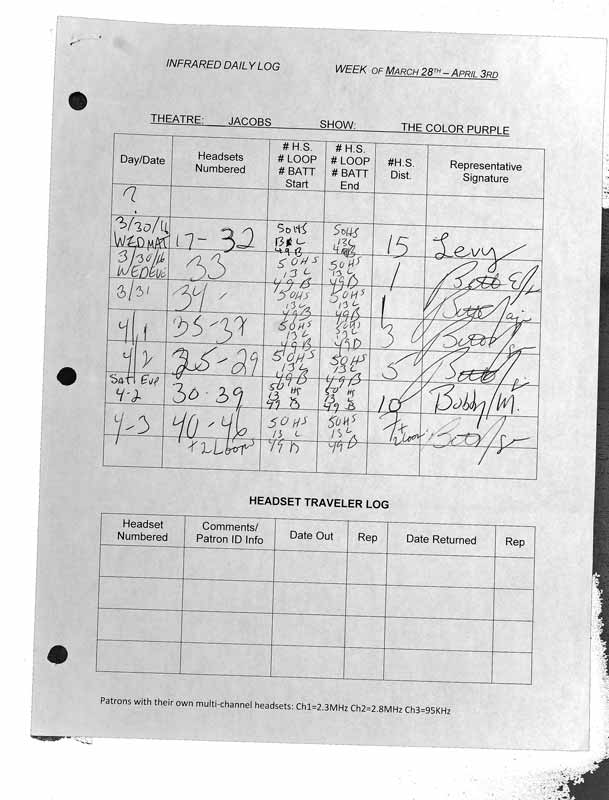 INFRARED DAILY LOG
WEEK OF MARCH 28TH – APRIL 3RD
THEATRE: JACOBS SHOW: THE COLOR PURPLE
Day/Date Headsets Numbered # H.S. # LOOP # BATT Start # H.S. # LOOP # BATT End #H.S. Dist. Representative Signature
?
3/30/16 WED MAT 17 - 32 50 HS 13 L 49 B 50 HS 13 L 49 B 15 Levy
3/30/16 WED EVE 33 50 HS 13 L 49 B 50 HS 13 L 49 B 1
3/31 34 - 50 HS 13 L 49 B 50 HS 13 L 49 B 1
4/1 35-37 50 HS 13 L 49 B 50 HS 49 B 3
4/2 25-29 50 HS 13 L 49 B 50 HS 13 L 49 B 5
Sat Eve 4-2 30-39 50 HS 13 L 49 B 50 HS 13 L 49 B 10 Bobby M.
4-3 40-46 +2 Loops 50 HS 13 L 49 B 50 HS 13 L 49 B 7+ 2 Loop
HEADSET TRAVELER LOG
Headset Numbered Comments/ Patron ID Info Date Out Rep Date Returned Rep
Patrons with their own multi-channel headsets: Ch1=2.3MHz Ch2=2.8MHz Ch3=95KHz